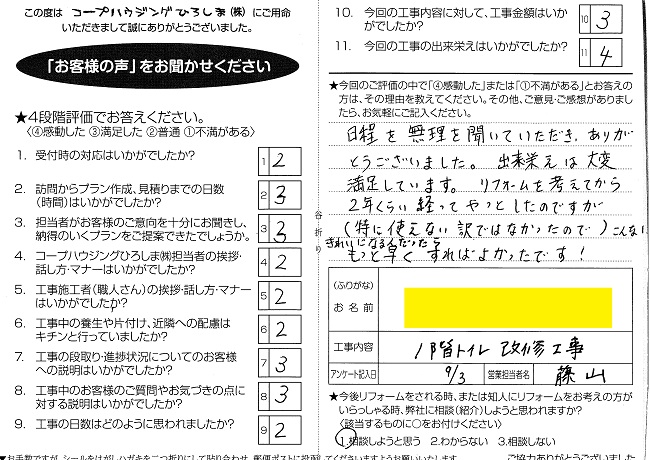 この度は コープハウジングひろしま(株) にご用命
いただきまして誠にありがとうございました。
「お客様の声」をお聞かせください
★4段階評価でお答えください。
〈④感動した ③満足した ②普通 ①不満がある〉
1. 受付時の対応はいかがでしたか?
1 2
2. 訪問からプラン作成、見積りまでの日数
(時間)はいかがでしたか?
2 3
3. 担当者がお客様のご意向を十分にお聞きし、
納得のいくプランをご提案できたでしょうか。
3 3
4. コープハウジングひろしま㈱担当者の挨拶・
話し方・マナーはいかがでしたか?
4 2
5. 工事施工者(職人さん)の挨拶・話し方・マナー
はいかがでしたか?
5 2
6. 工事中の養生や片付け、近隣への配慮は
キチンと行っていましたか?
6 2
7. 工事の段取り・進捗状況についてのお客様
への説明はいかがでしたか?
7 3
8. 工事中のお客様のご質問やお気づきの点に
対する説明はいかがでしたか?
8 3
9. 工事の日数はどのように思われましたか?
9 2
谷折り
10. 今回の工事内容に対して、工事金額はいか
がでしたか?
10 3
11. 今回の工事の出来栄えはいかがでしたか?
11 4
★今回のご評価の中で「④感動した」または「①不満がある」とお答えの
方は、その理由を教えてください。その他、ご意見・ご感想がありました
ら、お気軽にご記入ください。
日程を無理を聞いていただき、ありが
とうございました。出来栄えは大変
満足しています。リフォームを考えてから
2年くらい経ってやっとしたのですが
(特に使えない訳ではなかったので)こんなに
きれいになるんだったら
もっと早くすればよかったです!
(ふりがな)
お名前
工事内容 1階トイレ改修工事
アンケート記入日 9/3 営業担当者名 藤山
★今後リフォームをされる時、または知人にリフォームをお考えの方が
いらっしゃる時、弊社に相談(紹介)しようと思われますか?
〈該当するものに○をお付けください〉
1.相談しようと思う 2.わからない 3.相談しない
ご協力ありがとうございました